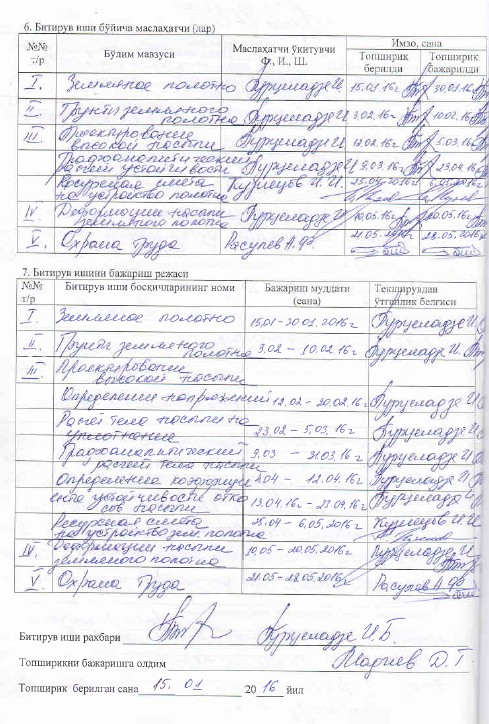 6. Битирув иши бўйича маслаҳатчи (лар)
№№ т/р Бўлим мавзуси Маслаҳатчи ўқитувчи Ф., И., Ш. Имзо, сана
Топширик берилди Топширик бажарилди
I. Земляное полотно Пурцеладзе И. 15.01.16г 30.01.16
II Грунты земляного полотна Пурцеладзе И 3.02.16г 10.02.16
III Проектирование высокой насыпи Пурцеладзе И. 12.02.16г 5.03.16г
Графоаналитический расчет устойчивости Пурцеладзе И. 9.03.16г 23.04.16г
Ресурсная смета на устройство полотна Кузнецов И. И. 25.04.2016г 6.05.2016г
IV. Деформации насыпи земляного полотна Пурцеладзе И 10.05.16г 20.05.16г
V. Охрана Труда Расулев А.Ф 21.05.2016г 28.05.2016г
7. Битирув ишини бажариш режаси
№№ т/р Битирув иши босқичларининг номи Бажариш муддати (сана) Текширувдан ўтганлик белгиси
I Земляное полотно 15.01-30.01.2016г Пурцеладзе И.
II. Грунты земляного полотна 3.02 – 10.02.16г Пурцеладзе И.
III Проектирование высокой насыпи
Определение напряжений 12.02-20.02.16г Пурцеладзе И
Расчет тела насыпи на уплотнение 23.02 – 5.03.16г Пурцеладзе И
Графоаналитический расчет тела насыпи 9.03 – 31.03.16г Пурцеладзе И
Определение коэффици 1.04 – 12.04.16г Пурцеладзе И
ента устойчивости отко сов насыпи 13.04.16г – 23.04.16г Пурцеладзе И
Ресурсная смета на устройство зем. полотна 25.04 – 6.05.2016г Кузнецов И.И
IV. Деформации насыпи земляного полотна 10.05-20.05.2016г Пурцеладзе И
V. Охрана Труда 21.05-28.05.2016г Расулев А.Ф
Битирув иши раҳбари Пурцеладзе И.Б.
Топширикни бажаришга олдим Д. Т.
Топширик берилган сана 15. 01 2016 йил